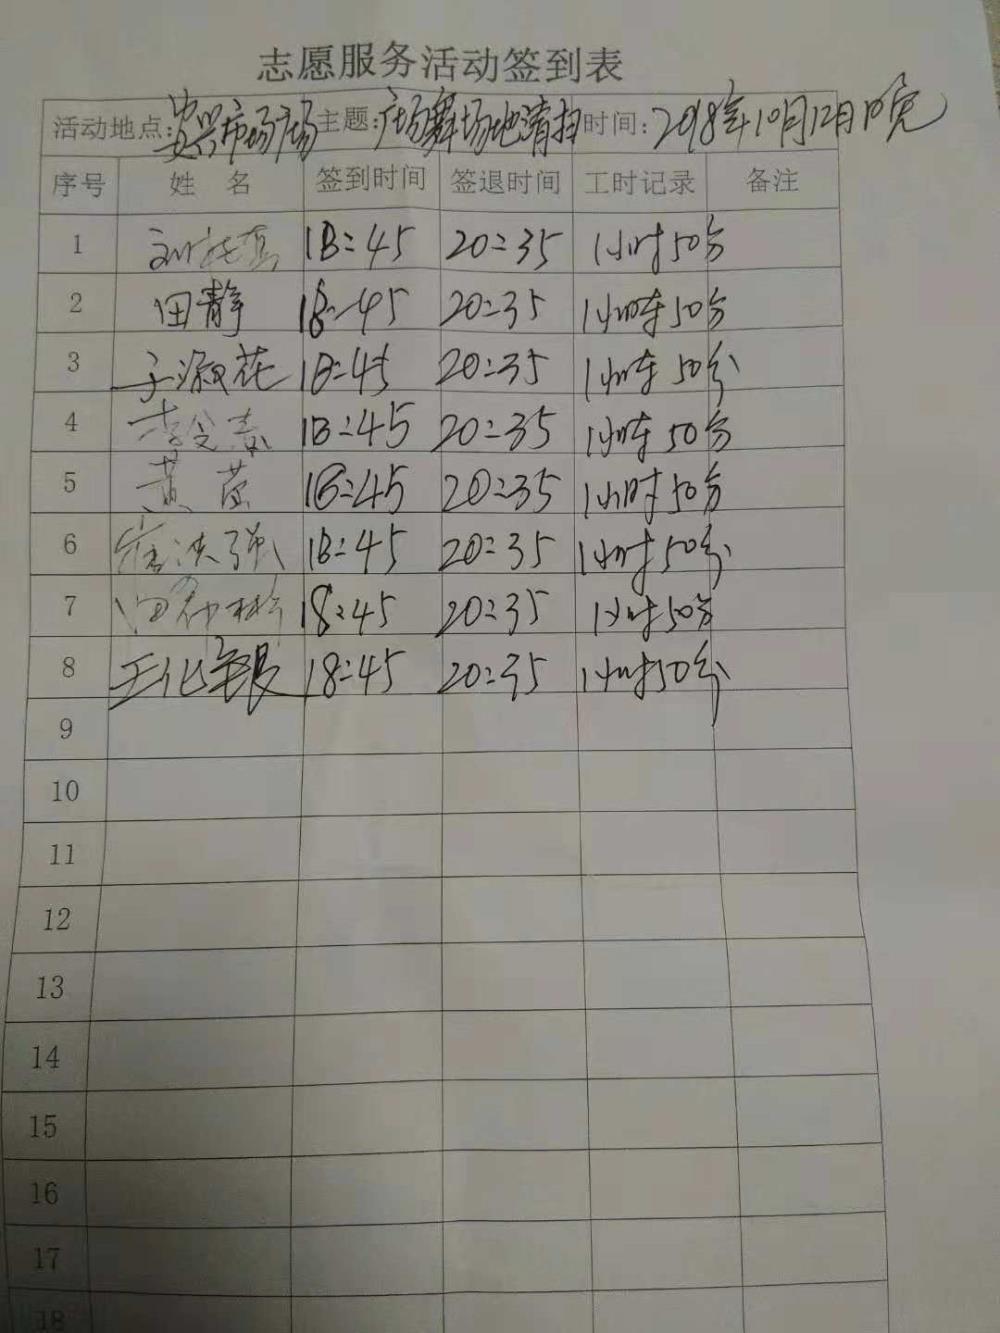 志愿服务活动签到表
活动地点:安兴市场广场 主题:广场舞场地清扫 时间:2018年10月12日晚
序号 姓名 签到时间 签退时间 工时记录 备注
1 18:45 20:35 1小时50分
2 田静 18:45 20:35 1小时50分
3 于淑花 18:45 20:35 1小时50分
4 18:45 20:35 1小时50分
5 黄 18:45 20:35 1小时50分
6 强 18:45 20:35 1小时50分
7 田 18:45 20:35 1小时50分
8 王化银 18:45 20:35 1小时50分
9
10
11
12
13
14
15
16
17
18